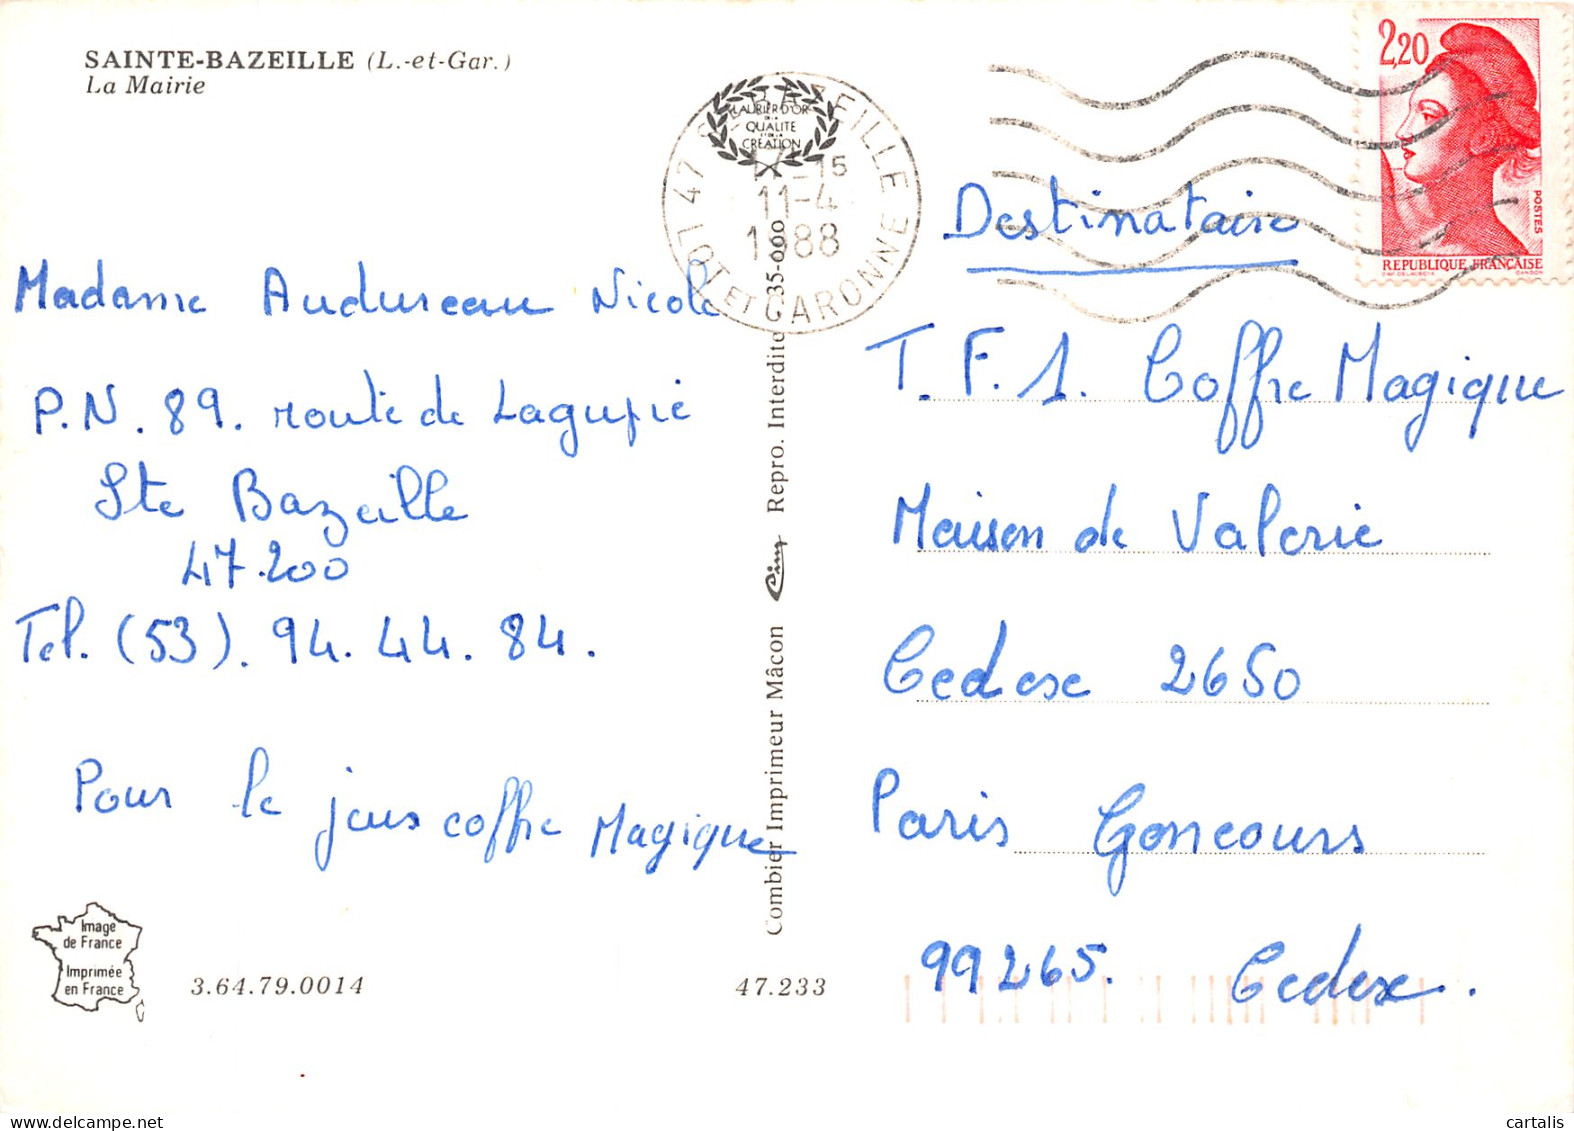 SAINTE-BAZEILLE (L.-et-Gar.)
La Mairie
LAURIER D'OR
DE LA
QUALITE
ET DE LA
CREATION
11-4
1988
LOT ET GARONNE
2,20
POSTES
REPUBLIQUE FRANÇAISE
Madame Audureau Nicole
P.N. 89. route de Lagupie
Ste Bazeille
47.200
Tel. (53). 94. 44. 84.
Pour le jeux coffre Magique
Combier Imprimeur Mâcon Cim Repro. Interdite
Destinataire
T. F. 1. Coffre Magique
Maison de Valerie
Cedexe 2650
Paris Goncours
99265. Cedexe.
Image
de France
Imprimée
en France
3.64.79.0014
47.233
cartalis